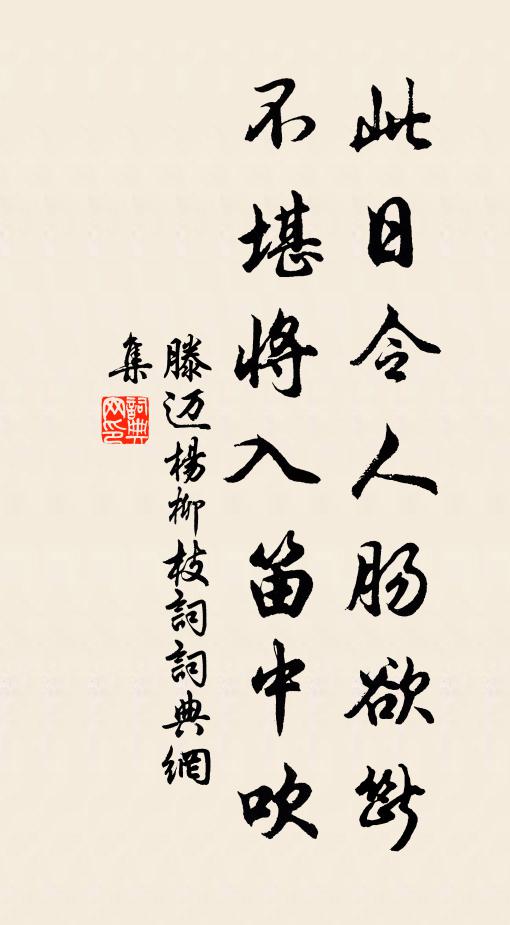 此日令人肠欲斷
不堪将入笛中吹
滕迈楊柳枝詞詞典網
集
詞典
网印